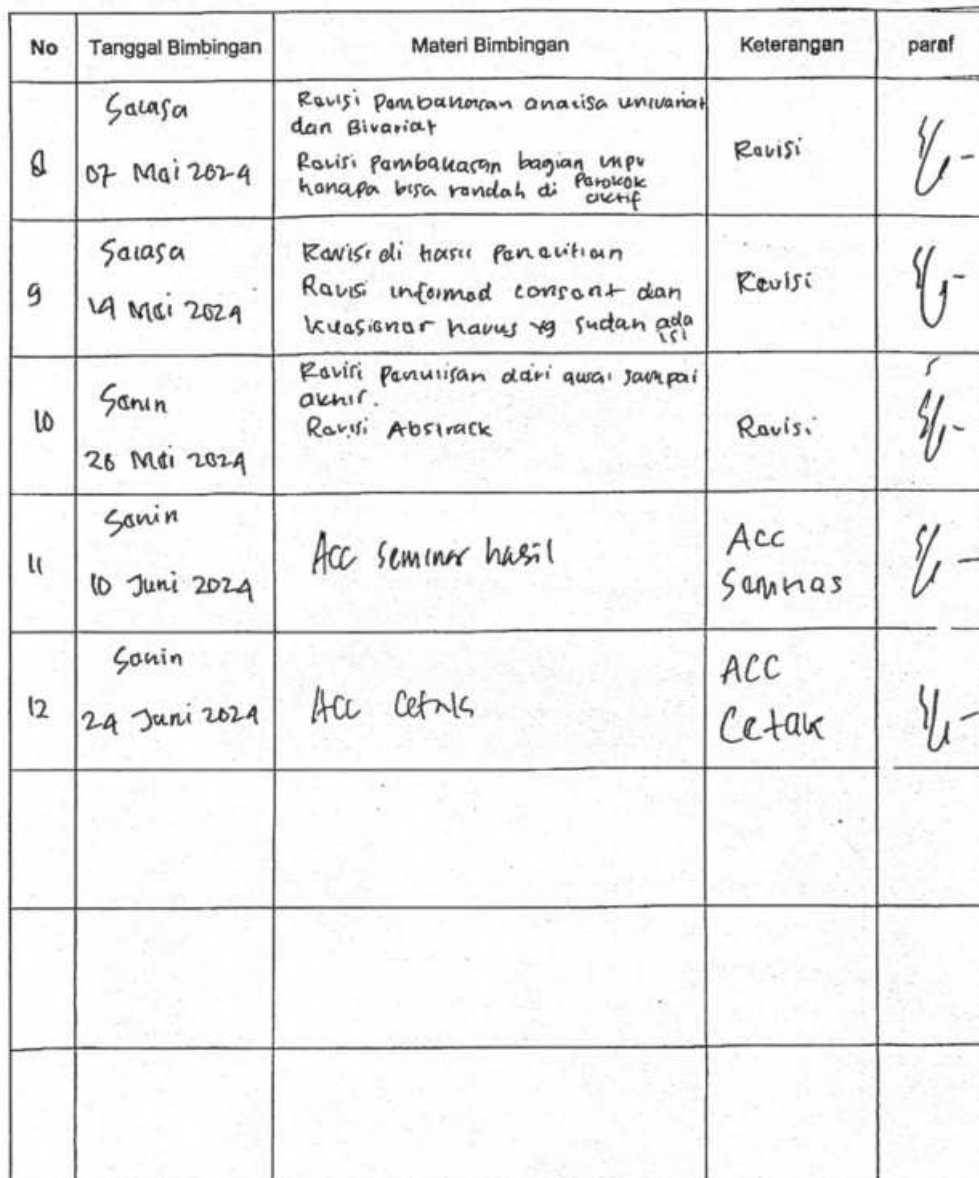 No Tanggal Bimbingan Materi Bimbingan Keterangan paraf
8
Selasa
07 Mei 2024
Revisi Pembahasan analisa univariat
dan Bivariat
Revisi pembahasan bagian
kenapa bisa rendah di Perokok
aktif
Revisi
9
Selasa
14 Mei 2024
Revisi di hasil Penelitian
Revisi informed consent dan
kuesioner harus yg sudah ada
isi
Revisi
10
Senin
Mei 2024
Revisi penulisan dari awal sampai
akhir.
Revisi Abstrack
Revisi
11
Senin
10 Juni 2024
Acc seminar hasil
Acc
Semhas
12
Senin
24 Juni 2024
Acc Cetak
ACC
Cetak